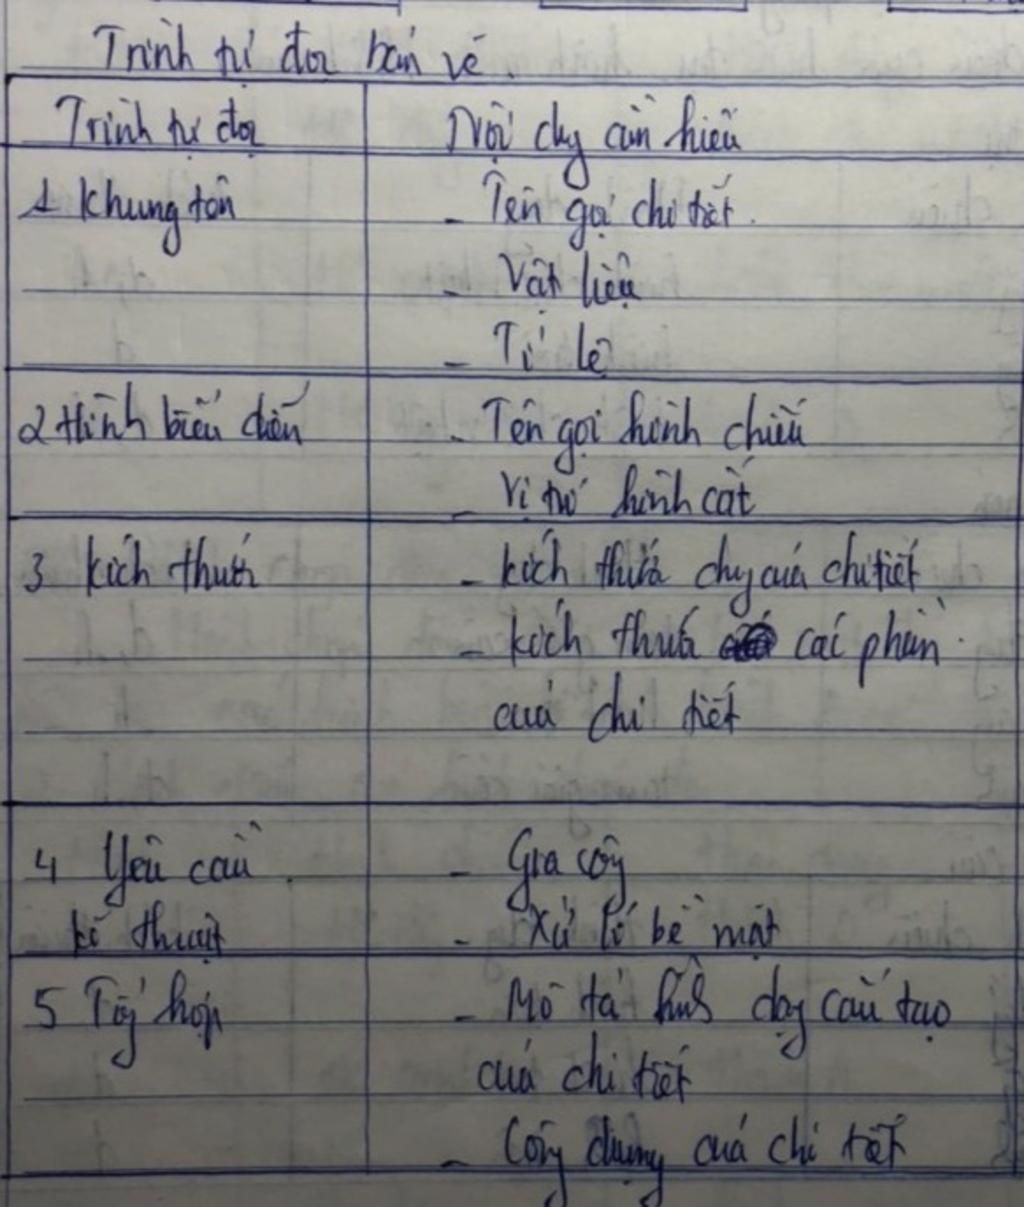 Trình tự đọc bản vẽ.
Trình tự đọc Nội dung cần hiểu
1 Khung tên - Tên gọi chi tiết.
- Vật liệu
- Tỉ lệ
2 Hình biểu diễn - Tên gọi hình chiếu
- Vị trí hình cắt
3 kích thước - kích thước chung của chi tiết
- kích thước các phần
của chi tiết
4 Yêu cầu - Gia công
kĩ thuật - Xử lí bề mặt
5 Tổng hợp - Mô tả hình dạng cấu tạo
của chi tiết
- Công dụng của chi tiết